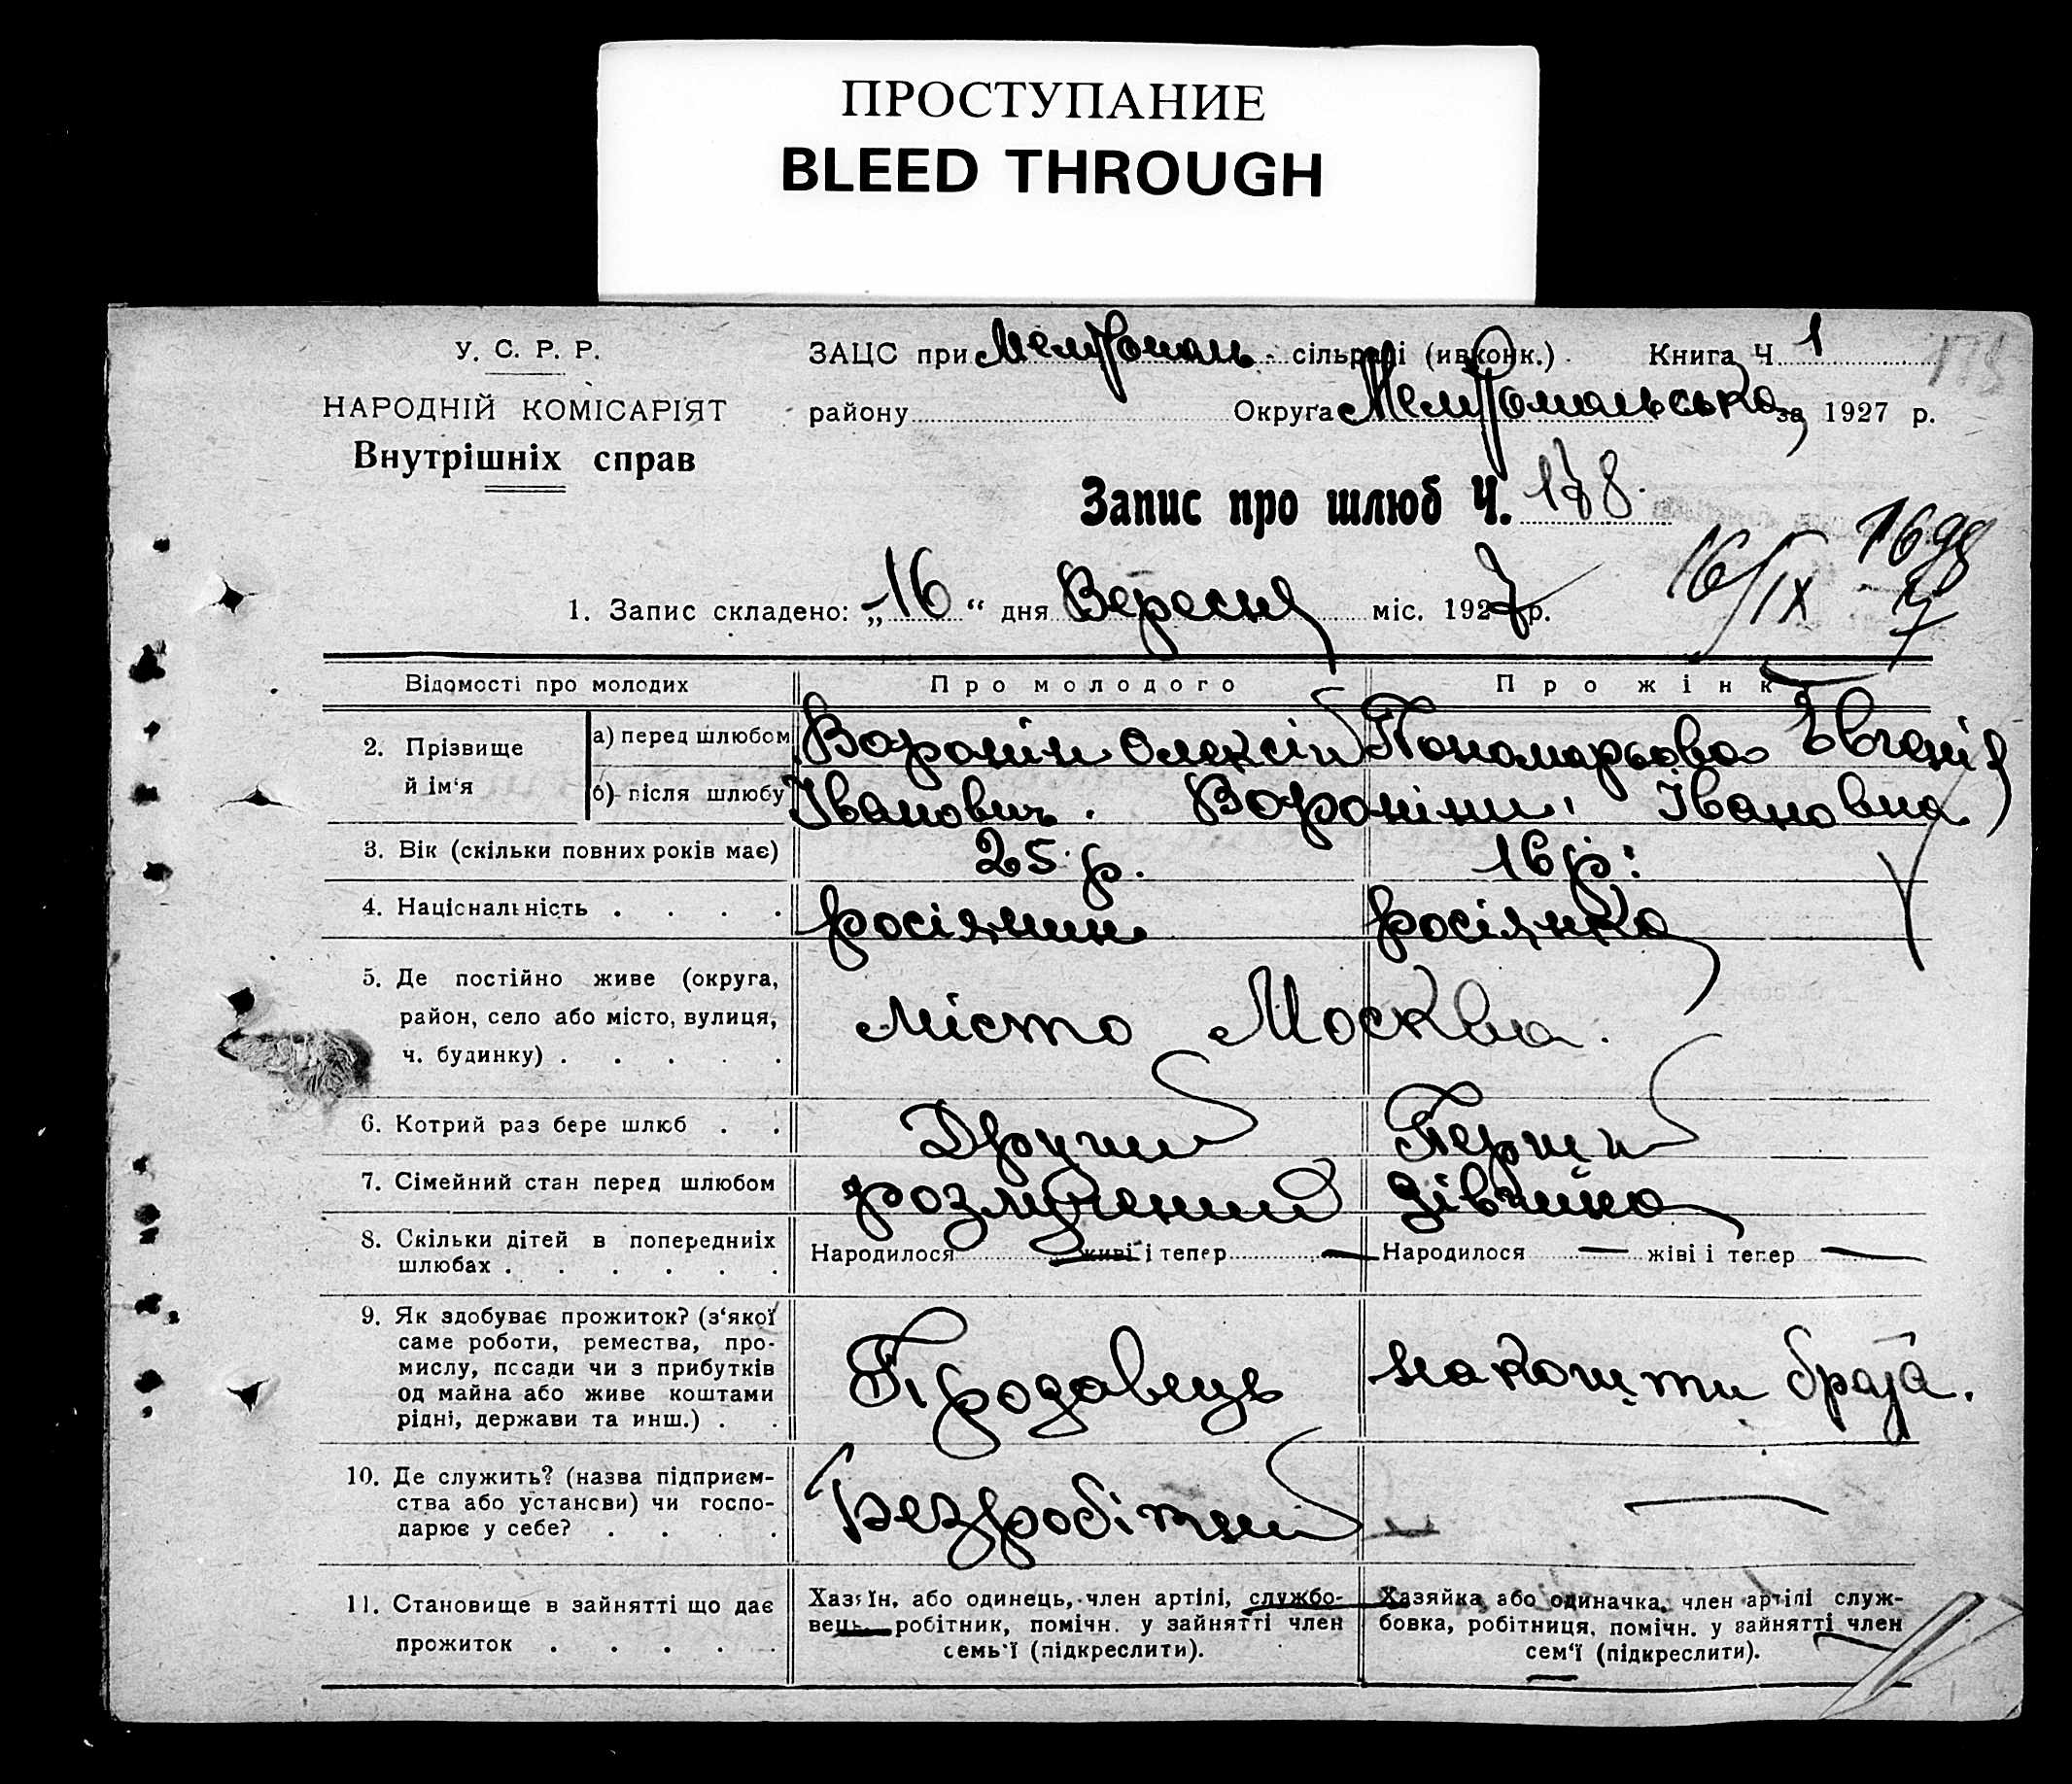 ПРОСТУПАНИЕ
BLEED THROUGH
У. С. Р. Р.
НАРОДНІЙ КОМІСАРІЯТ
Внутрішніх справ
ЗАЦС при Мелітополь сільраді (ивконк.) Книга Ч 1
району Округа Мелітопольська за 1927 р.
Запис про шлюб Ч. 178.
16/IX
1. Запис складено: „16“ дня Вересня міс. 1927 р.
Відомості про молодих Про молодого Про жінку
2. Прізвище й ім‘я
а) перед шлюбом Воронін Олексій Пономарьова Євгенія
б) після шлюбу Іванович. Вороніни. Івановна
3. Вік (скільки повних років має) 25 р. 16 р.
4. Національність росіянин росіянка
5. Де постійно живе (округа,
район, село або місто, вулиця, місто Москва.
ч. будинку)
6. Котрий раз бере шлюб Другий Перший
7. Сімейний стан перед шлюбом розлучений дівчина
8. Скільки дітей в попередниіх Народилося живі і тепер — Народилося — жіві і тепер —
шлюбах
9. Як здобуває прожиток? (з‘якої
саме роботи, ремества, про-
мислу, посади чи з прибутків Продавець на кошти брата.
од майна або живе коштами
рідні, держави та инш.)
10. Де служить? (назва підприєм-
ства або установи) чи госпо- Безробітний —
дарює у себе?
11. Становище в зайнятті що дає
прожиток
Хазяїн, або одинець, член артілі, службо-
вець, робітник, помічн. у зайнятті член
семь‘ї (підкреслити).
Хазяйка або одиначка, член артілі служ-
бовка, робітниця, помічн. у зайнятті член
сем‘ї (підкреслити).